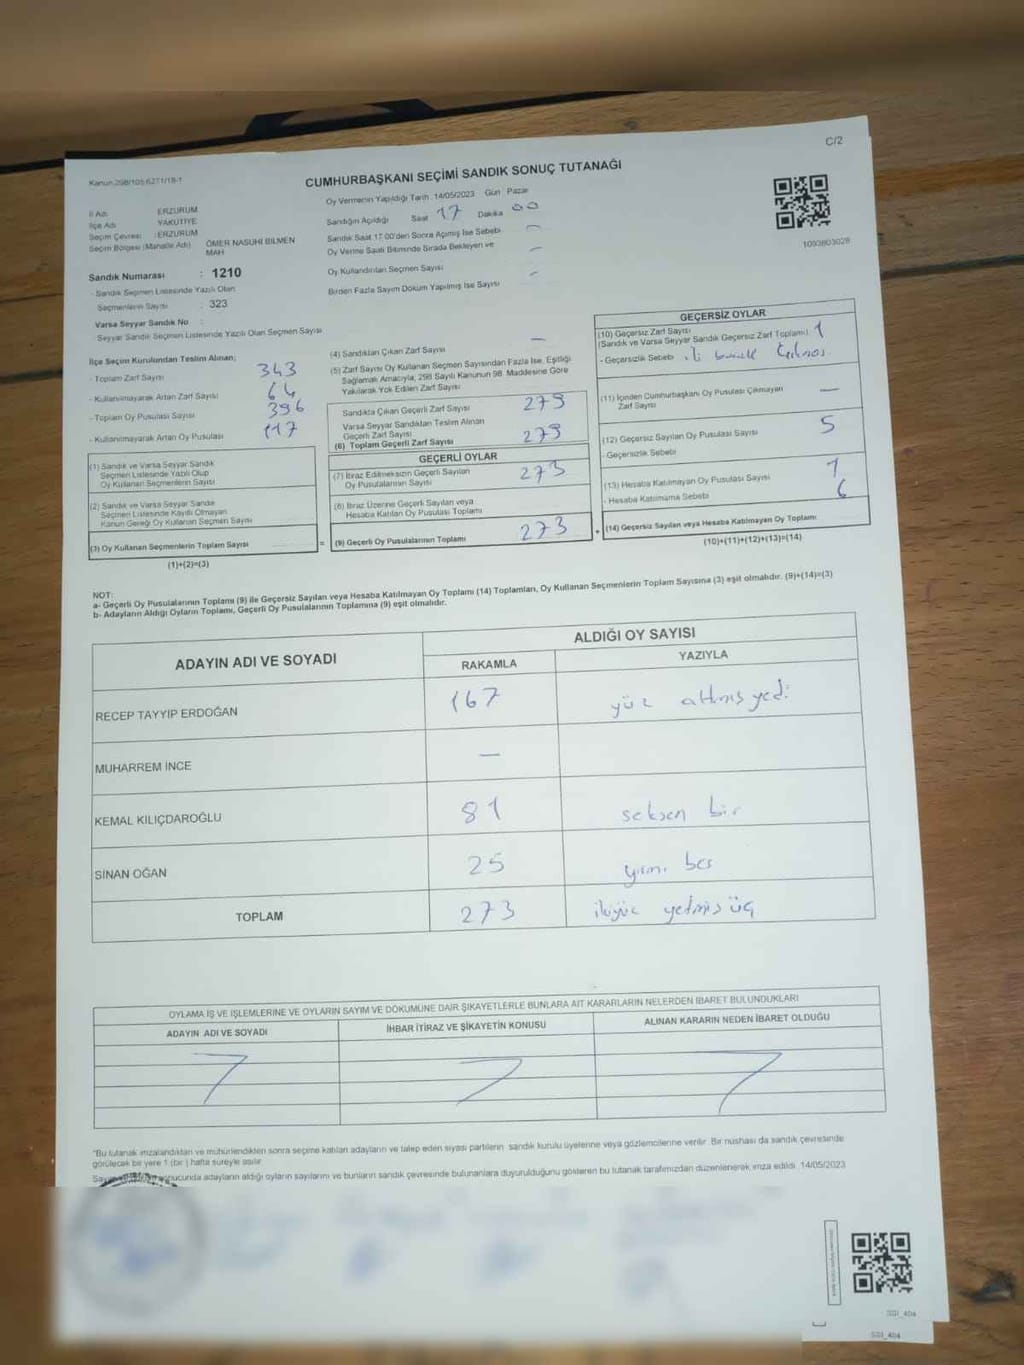 C/2
Kanun 298/105-6271/18-1
CUMHURBAŞKANI SEÇİMİ SANDIK SONUÇ TUTANAĞI
İl Adı : ERZURUM
İlçe Adı : YAKUTİYE
Seçim Çevresi : ERZURUM
Seçim Bölgesi (Mahalle Adı) : ÖMER NASUHİ BİLMEN MAH
Sandık Numarası : 1210
- Sandık Seçmen Listesinde Yazılı Olan
Seçmenlerin Sayısı : 323
Varsa Seyyar Sandık No :
Seyyar Sandık Seçmen Listesinde Yazılı Olan Seçmen Sayısı
Oy Vermenin Yapıldığı Tarih : 14/05/2023 Gün : Pazar
Sandığın Açıldığı Saat 17 Dakika 00
Sandık Saat 17:00'den Sonra Açılmış İse Sebebi —
Oy Verme Saati Bitiminde Sırada Bekleyen ve
Oy Kullandırılan Seçmen Sayısı —
Birden Fazla Sayım Döküm Yapılmış İse Sayısı —
1093803028
İlçe Seçim Kurulundan Teslim Alınan;
- Toplam Zarf Sayısı 343
- Kullanılmayarak Artan Zarf Sayısı 64
- Toplam Oy Pusulası Sayısı 396
- Kullanılmayarak Artan Oy Pusulası 117
(1) Sandık ve Varsa Seyyar Sandık
Seçmen Listesinde Yazılı Olup
Oy Kullanan Seçmenlerin Sayısı
(2) Sandık ve Varsa Seyyar Sandık
Seçmen Listesinde Kayıtlı Olmayan
Kanun Gereği Oy Kullanan Seçmen Sayısı
(3) Oy Kullanan Seçmenlerin Toplam Sayısı
(1)+(2)=(3)
(4) Sandıktan Çıkan Zarf Sayısı —
(5) Zarf Sayısı Oy Kullanan Seçmen Sayısından Fazla İse, Eşitliği
Sağlamak Amacıyla, 298 Sayılı Kanunun 98. Maddesine Göre
Yakılarak Yok Edilen Zarf Sayısı
Sandıkta Çıkan Geçerli Zarf Sayısı 279
Varsa Seyyar Sandıktan Teslim Alınan
Geçerli Zarf Sayısı
(6) Toplam Geçerli Zarf Sayısı 279
GEÇERLİ OYLAR
(7) İtiraz Edilmeksizin Geçerli Sayılan
Oy Pusulasının Sayısı 273
(8) İtiraz Üzerine Geçerli Sayılan veya
Hesaba Katılan Oy Pusulası Toplamı
= (9) Geçerli Oy Pusulalarının Toplamı 273 +
GEÇERSİZ OYLAR
(10) Geçersiz Zarf Sayısı
(Sandık ve Varsa Seyyar Sandık Geçersiz Zarf Toplamı) 1
- Geçersizlik Sebebi
(11) İçinden Cumhurbaşkanı Oy Pusulası Çıkmayan
Zarf Sayısı —
(12) Geçersiz Sayılan Oy Pusulası Sayısı 5
- Geçersizlik Sebebi
(13) Hesaba Katılmayan Oy Pusulası Sayısı 1
- Hesaba Katılmama Sebebi 6
(14) Geçersiz Sayılan veya Hesaba Katılmayan Oy Toplamı
(10)+(11)+(12)+(13)=(14)
NOT:
a- Geçerli Oy Pusulalarının Toplamı (9) ile Geçersiz Sayılan veya Hesaba Katılmayan Oy Toplamı (14) Toplamları, Oy Kullanan Seçmenlerin Toplam Sayısına (3) eşit olmalıdır. (9)+(14)=(3)
b- Adayların Aldığı Oyların Toplamı, Geçerli Oy Pusulalarının Toplamına (9) eşit olmalıdır.
ADAYIN ADI VE SOYADI
ALDIĞI OY SAYISI
RAKAMLA YAZIYLA
RECEP TAYYİP ERDOĞAN 167 yüz altmış yedi
MUHARREM İNCE —
KEMAL KILIÇDAROĞLU 81 seksen bir
SİNAN OĞAN 25 yirmi beş
TOPLAM 273 ikiyüz yetmiş üç
OYLAMA İŞ VE İŞLEMLERİNE VE OYLARIN SAYIM VE DÖKÜMÜNE DAİR ŞİKAYETLERLE BUNLARA AİT KARARLARIN NELERDEN İBARET BULUNDUKLARI
ADAYIN ADI VE SOYADI İHBAR İTİRAZ VE ŞİKAYETİN KONUSU ALINAN KARARIN NEDEN İBARET OLDUĞU
"Bu tutanak imzalandıktan ve mühürlendikten sonra seçime katılan adayların ve talep eden siyasi partilerin sandık kurulu üyelerine veya gözlemcilerine verilir. Bir nüshası da sandık çevresinde
görülecek bir yere 1 (bir) hafta süreyle asılır.
sonucunda adayların aldığı oyların sayılarını ve bunların sandık çevresinde bulunanlara duyurulduğunu gösteren bu tutanak tarafımızdan düzenlenerek imza edildi. 14/05/2023
SSI_404
SSI_404